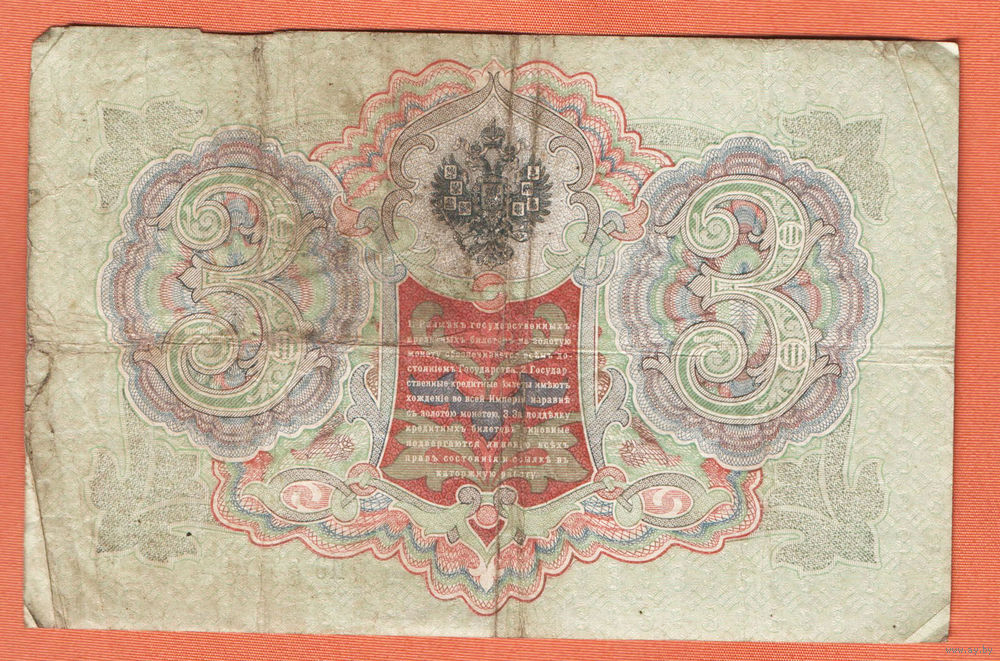 3 3
1. Размѣнъ государственныхъ
кредитныхъ билетовъ на золотую
монету обезпечивается всѣмъ до-
стояніемъ Государства. 2. Государ
ственные кредитные билеты имѣютъ
хожденіе во всей Имперіи наравнѣ
съ золотою монетою. 3. За поддѣлку
кредитныхъ билетовъ виновные
подвергаются лишенію всѣхъ
правъ состоянія и ссылкѣ въ
каторжную работу.
www.ay.by